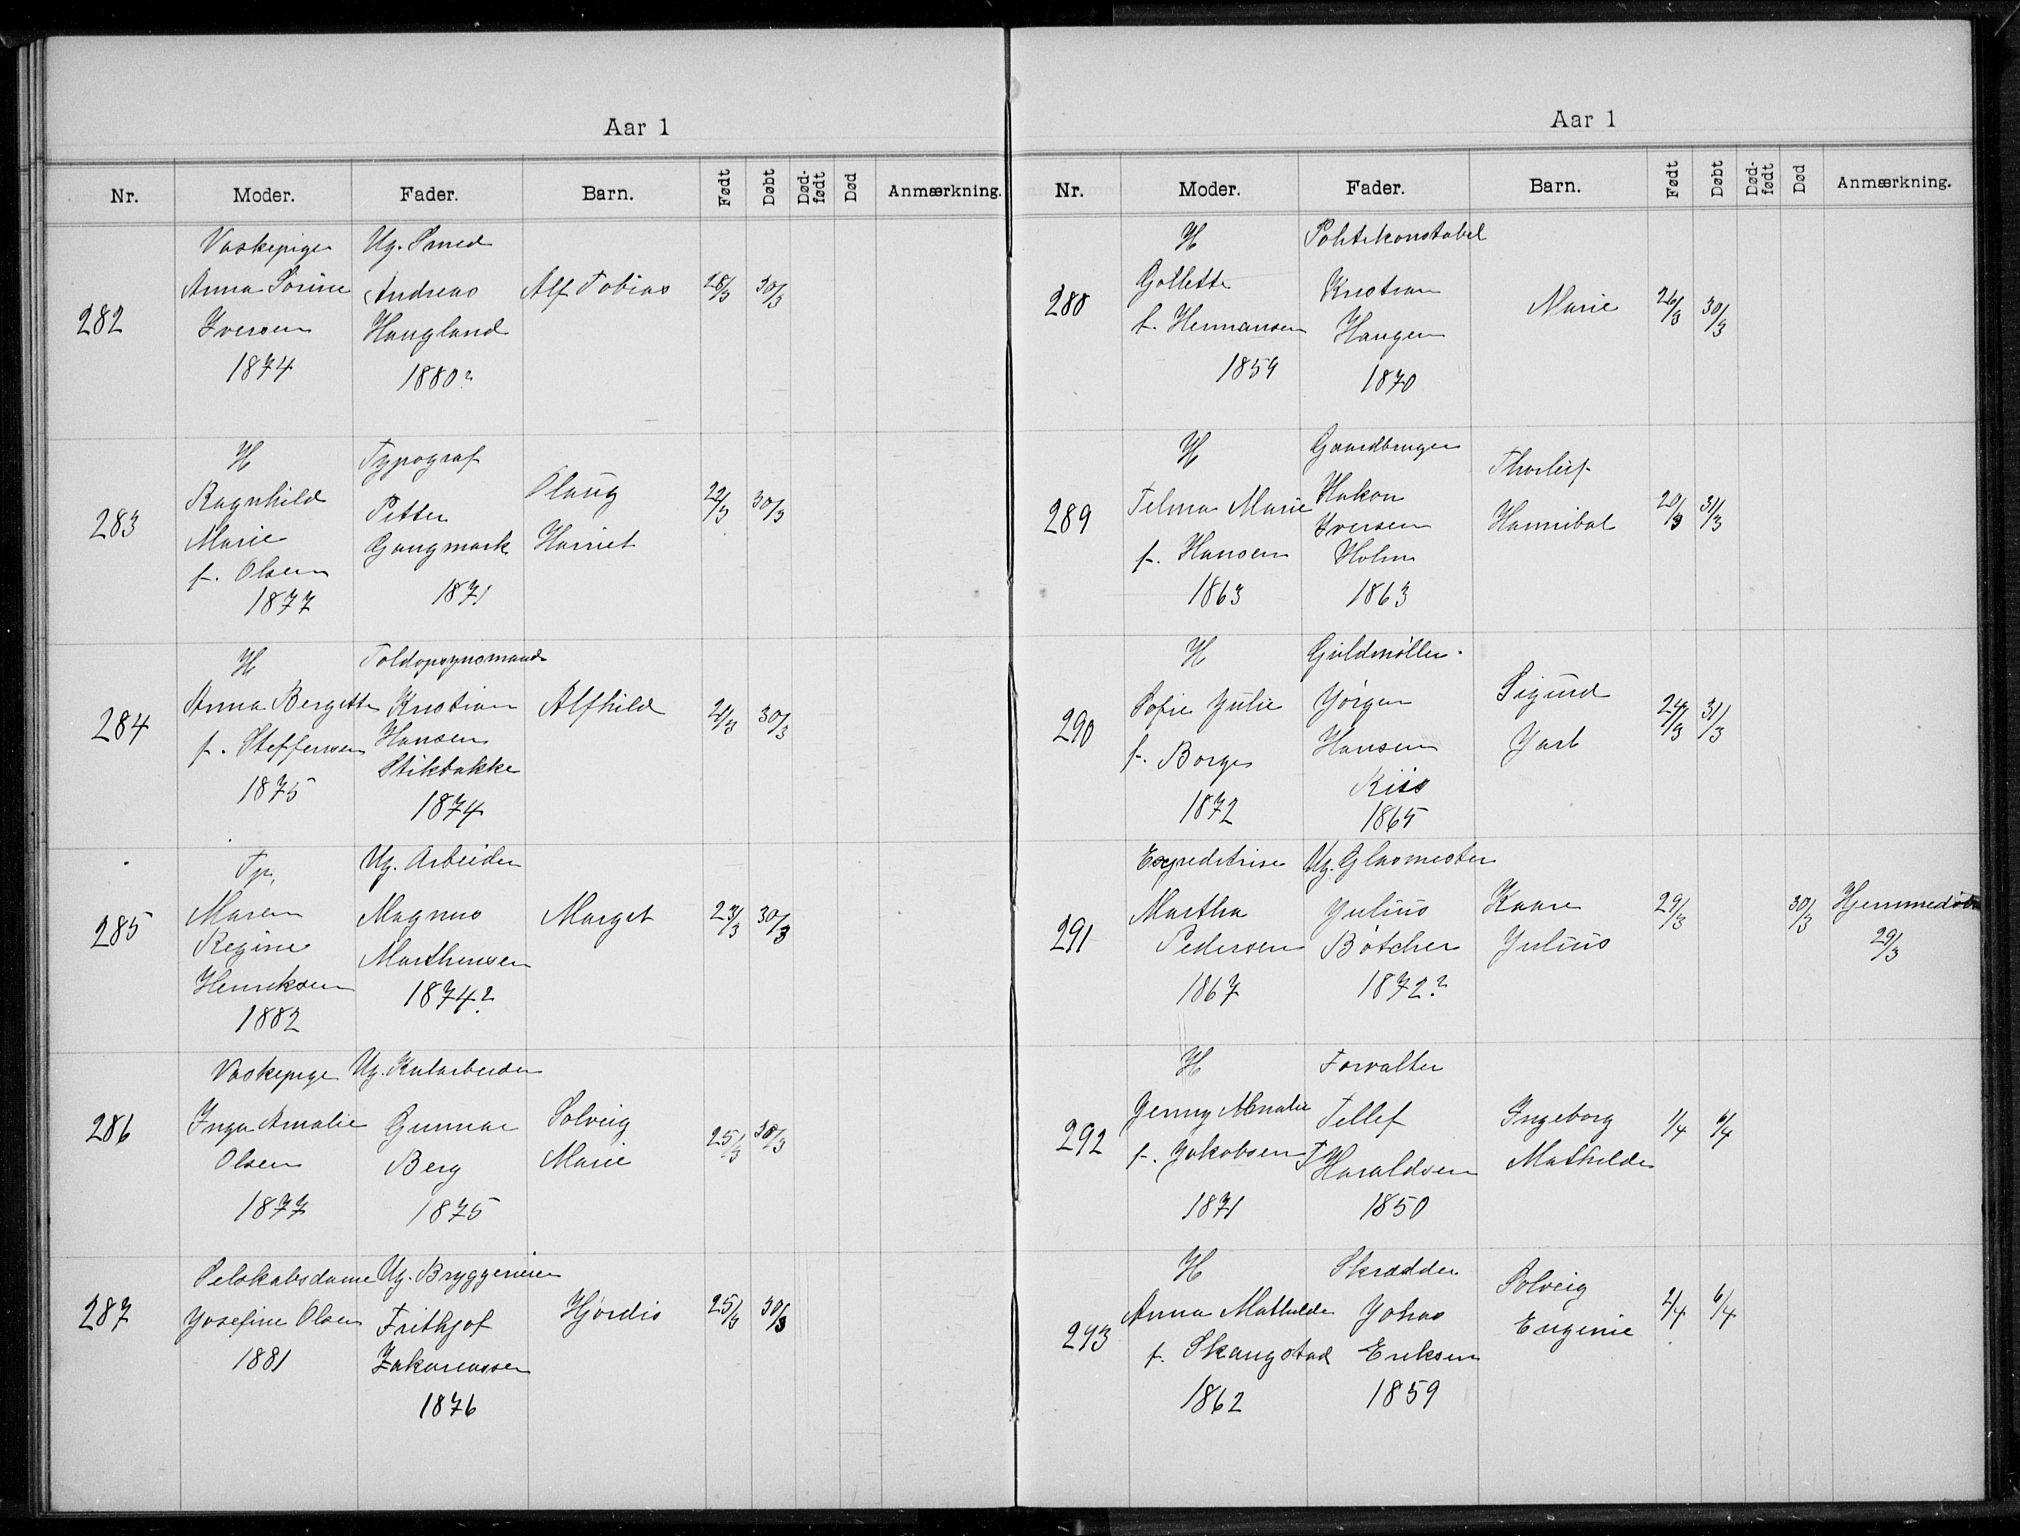 Aar 1
Nr. Moder. Fader. Barn. Født Døbt Død-født Død Anmærkning.
282
Vaskepige
Anna Sørine
Iversen
1874
Ug. Smed
Andreas
Haugland
1880?
Alf Tobias
28/3 30/3
283
H
Ragnhild
Marie
f. Olsen
1877
Typograf
Petter
Gangmark
1871
Olaug
Harriet
22/3 30/3
284
H
Anna Bergette
f. Steffensen
1875
Toldopsynsmand
Kristian
Hansen
Stikbakke
1874
Alfhild
21/3 30/3
285
Tp.
Maren
Regine
Henriksen
1882
Ug. Arbeider
Magnus
Marthinsen
1874?
Margit
23/3 30/3
286
Vaskepige
Inga Amalie
Olsen
1877
Ug. Kularbeider
Gunnar
Berg
1875
Solveig
Marie
25/3 30/3
287
Selskabsdame
Josefine Olsen
1881
Ug. Bryggerieier
Frithjof
Zakariassen
1876
Hjørdis
25/3 30/3
Aar 1
Nr. Moder. Fader. Barn. Født Døbt Død-født Død Anmærkning.
288
H
Gollette
f. Hermansen
1859
Politikonstabel
Kristian
Haugen
1870
Marie
26/3 30/3
289
H
Telma Marie
f. Hansen
1863
Gaardbruger
Hakon
Iversen
Holm
1863
Thorleif
Hannibal
20/3 31/3
290
H
Sofie Julie
f. Borge
1872
Guldmøller
Jørgen
Hansen
Kiss
1865
Sigurd
Jarl
24/3 31/3
291
Expeditrise
Martha
Pedersen
1867
Ug. Glasmester
Julius
Bøtcher
1872?
Kaare
Julius
29/3 30/3
Hjemmedøbt
29/3
292
H
Jenny Amalie
f. Jakobsen
1871
Forvalter
Tellef
T Haraldsen
1850
Ingeborg
Mathilde
1/4 6/4
293
H
Anna Mathilde
f. Skaugstad
1862
Skrædder
Johas
Eriksen
1859
Solveig
Eugenie
2/4 6/4